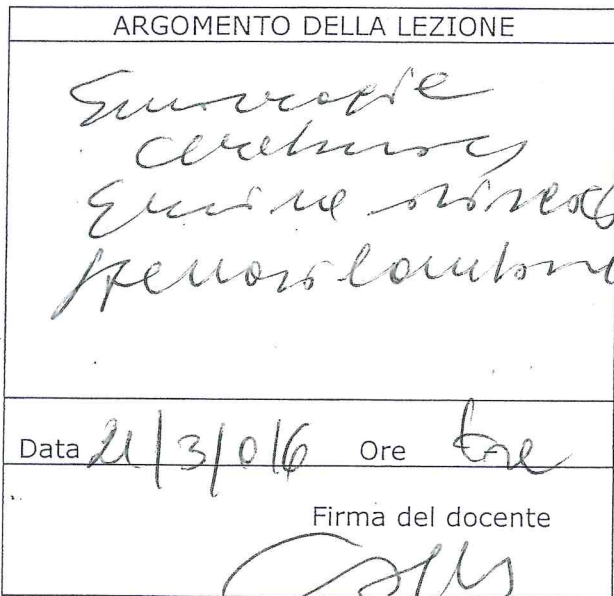 ARGOMENTO DELLA LEZIONE
Emorragie
cerebrali
Ernia
Stenosi lombare
Data 21/3/06 Ore tre
Firma del docente